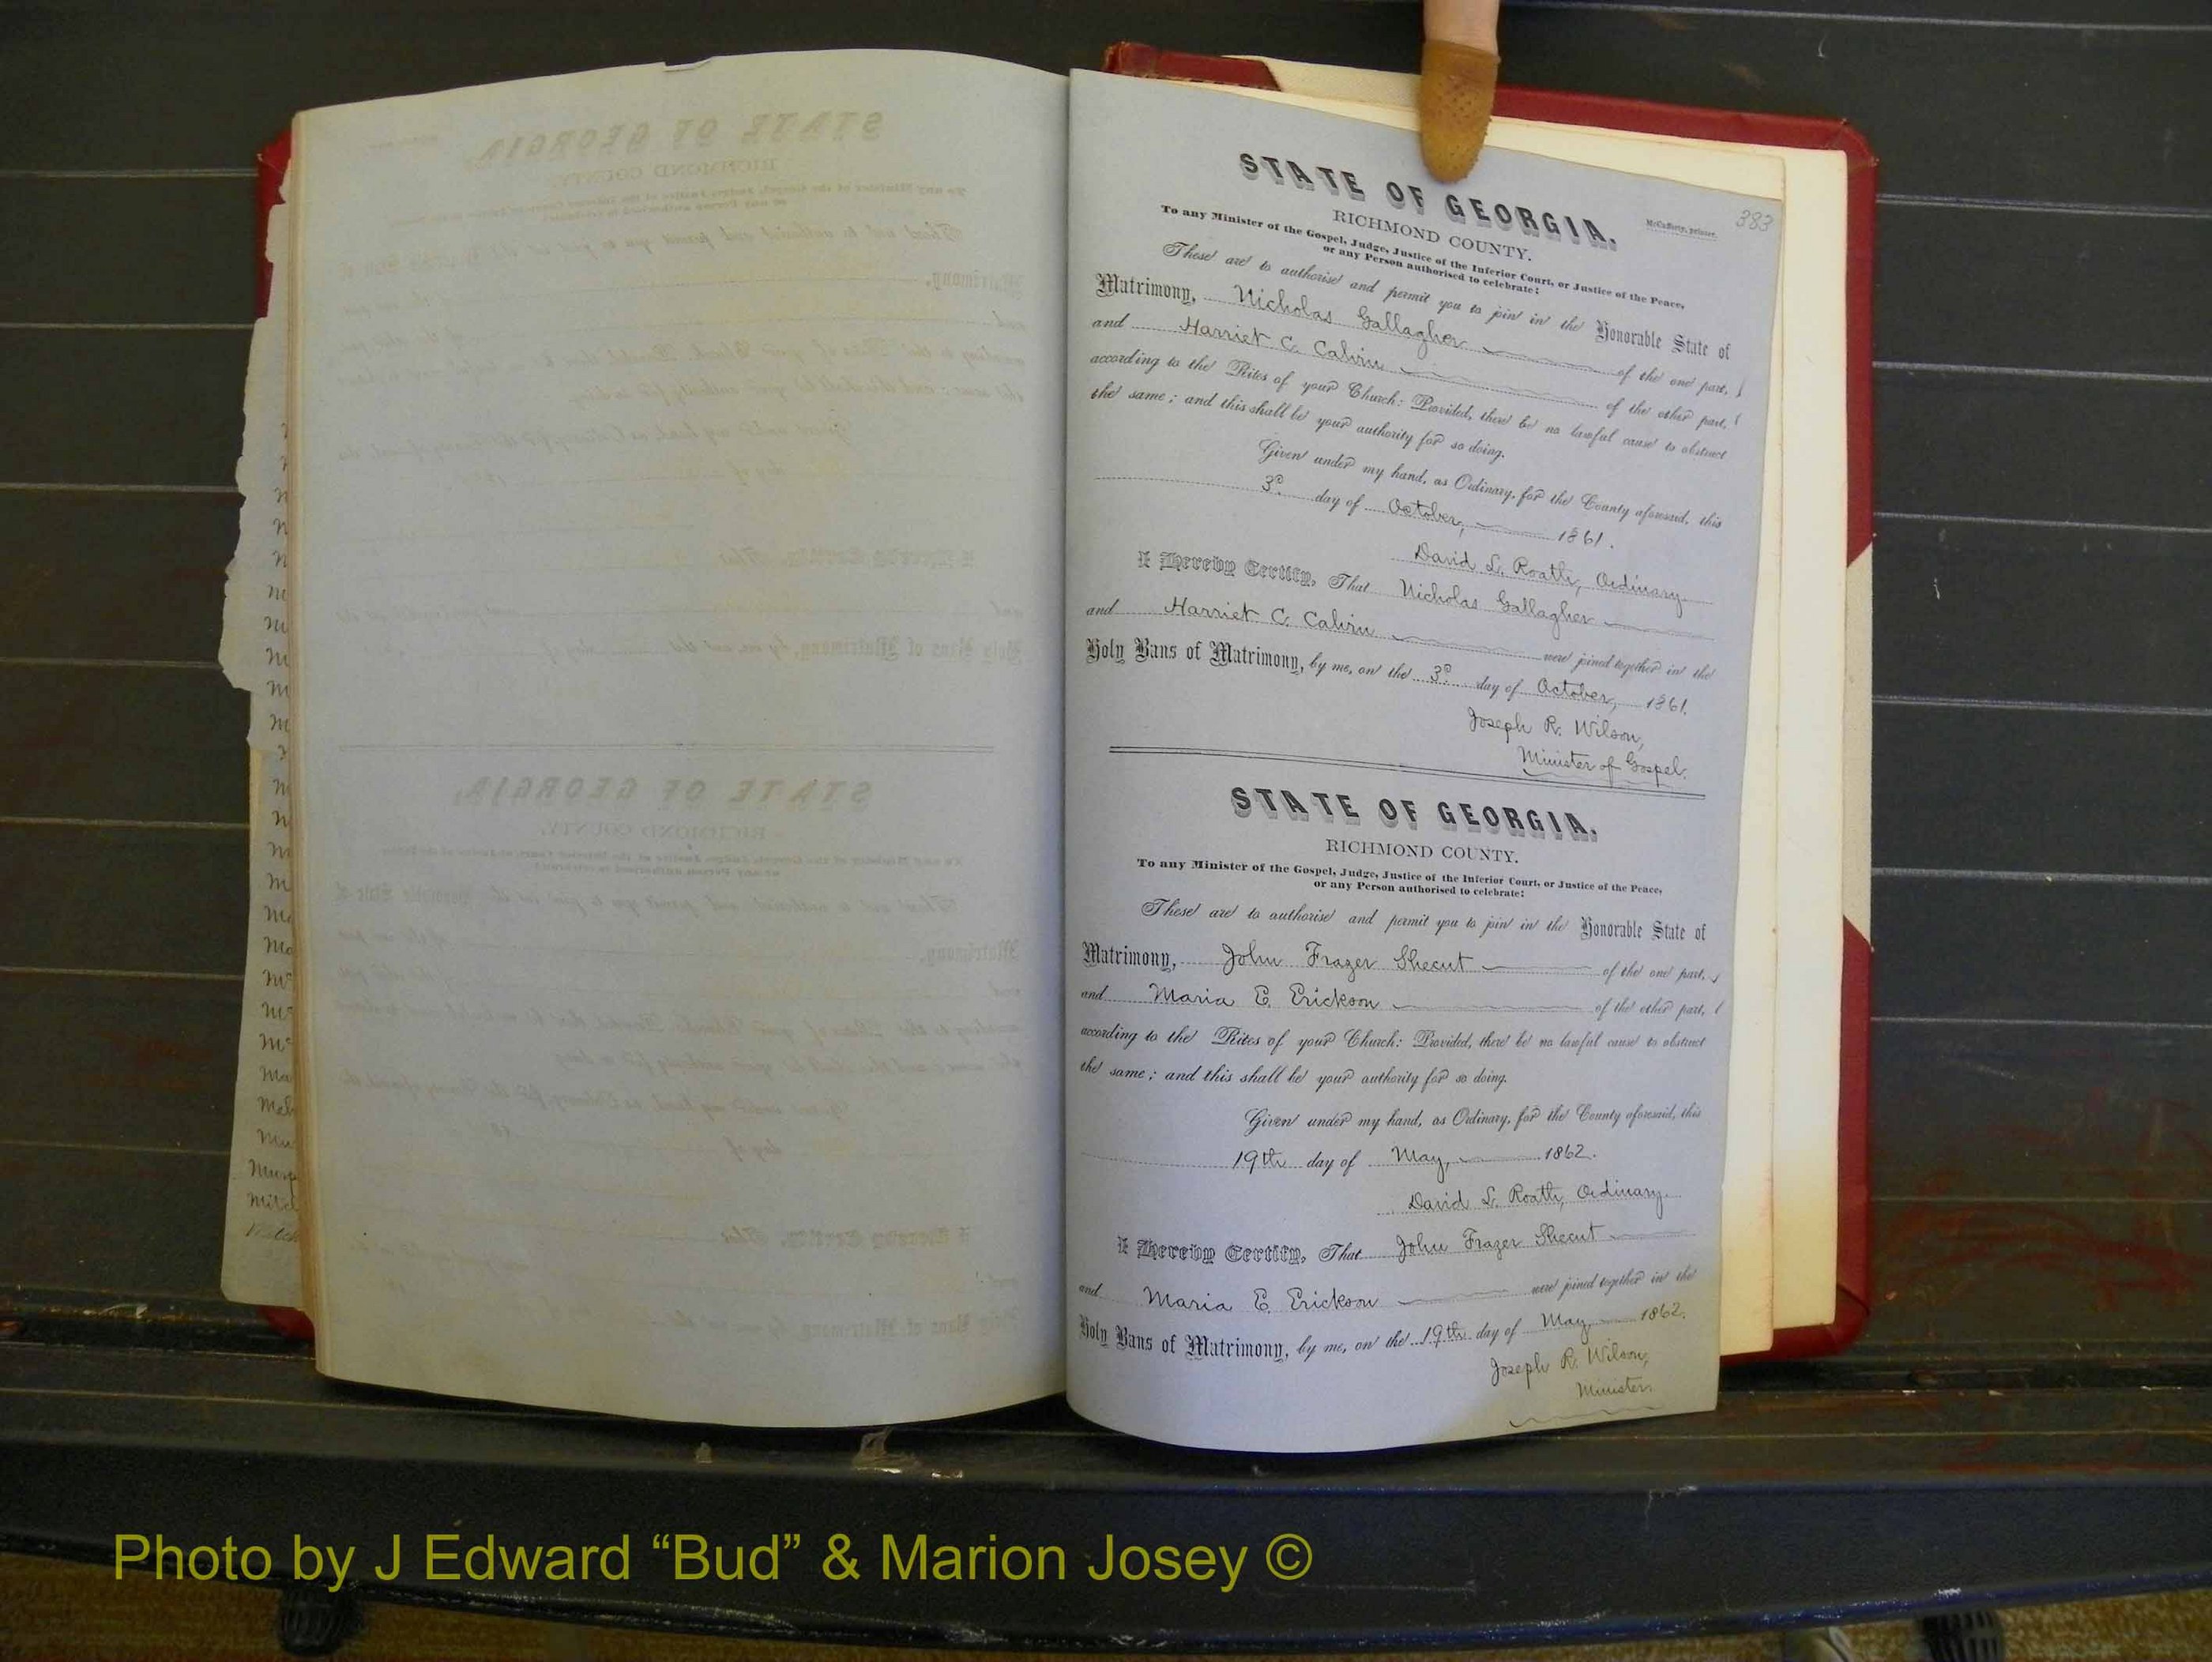 383
McCafferty, printer.
STATE OF GEORGIA.
RICHMOND COUNTY.
To any Minister of the Gospel, Judge, Justice of the Inferior Court, or Justice of the Peace,
or any Person authorised to celebrate:
These are to authorise and permit you to join in the Honorable State of
Matrimony, Nicholas Gallagher of the one part,
and Harriet C. Calvin of the other part,
according to the Rites of your Church: Provided, there be no lawful cause to obstruct
the same; and this shall be your authority for so doing.
Given under my hand, as Ordinary, for the County aforesaid, this
3d day of October, 1861.
David L. Roath, Ordinary
I Hereby Certify, That Nicholas Gallagher
and Harriet C. Calvin were joined together in the
Holy Bans of Matrimony, by me, on the 3d day of October, 1861.
Joseph R. Wilson,
Minister of Gospel.
STATE OF GEORGIA.
RICHMOND COUNTY.
To any Minister of the Gospel, Judge, Justice of the Inferior Court, or Justice of the Peace,
or any Person authorised to celebrate:
These are to authorise and permit you to join in the Honorable State of
Matrimony, John Frazer Shecut of the one part,
and Maria E. Erickson of the other part,
according to the Rites of your Church: Provided, there be no lawful cause to obstruct
the same; and this shall be your authority for so doing.
Given under my hand, as Ordinary, for the County aforesaid, this
19th day of May, 1862.
David L. Roath, Ordinary.
I Hereby Certify, That John Frazer Shecut
and Maria E. Erickson were joined together in the
Holy Bans of Matrimony, by me, on the 19th day of May 1862.
Joseph R. Wilson,
Minister.
Photo by J Edward “Bud” & Marion Josey ©